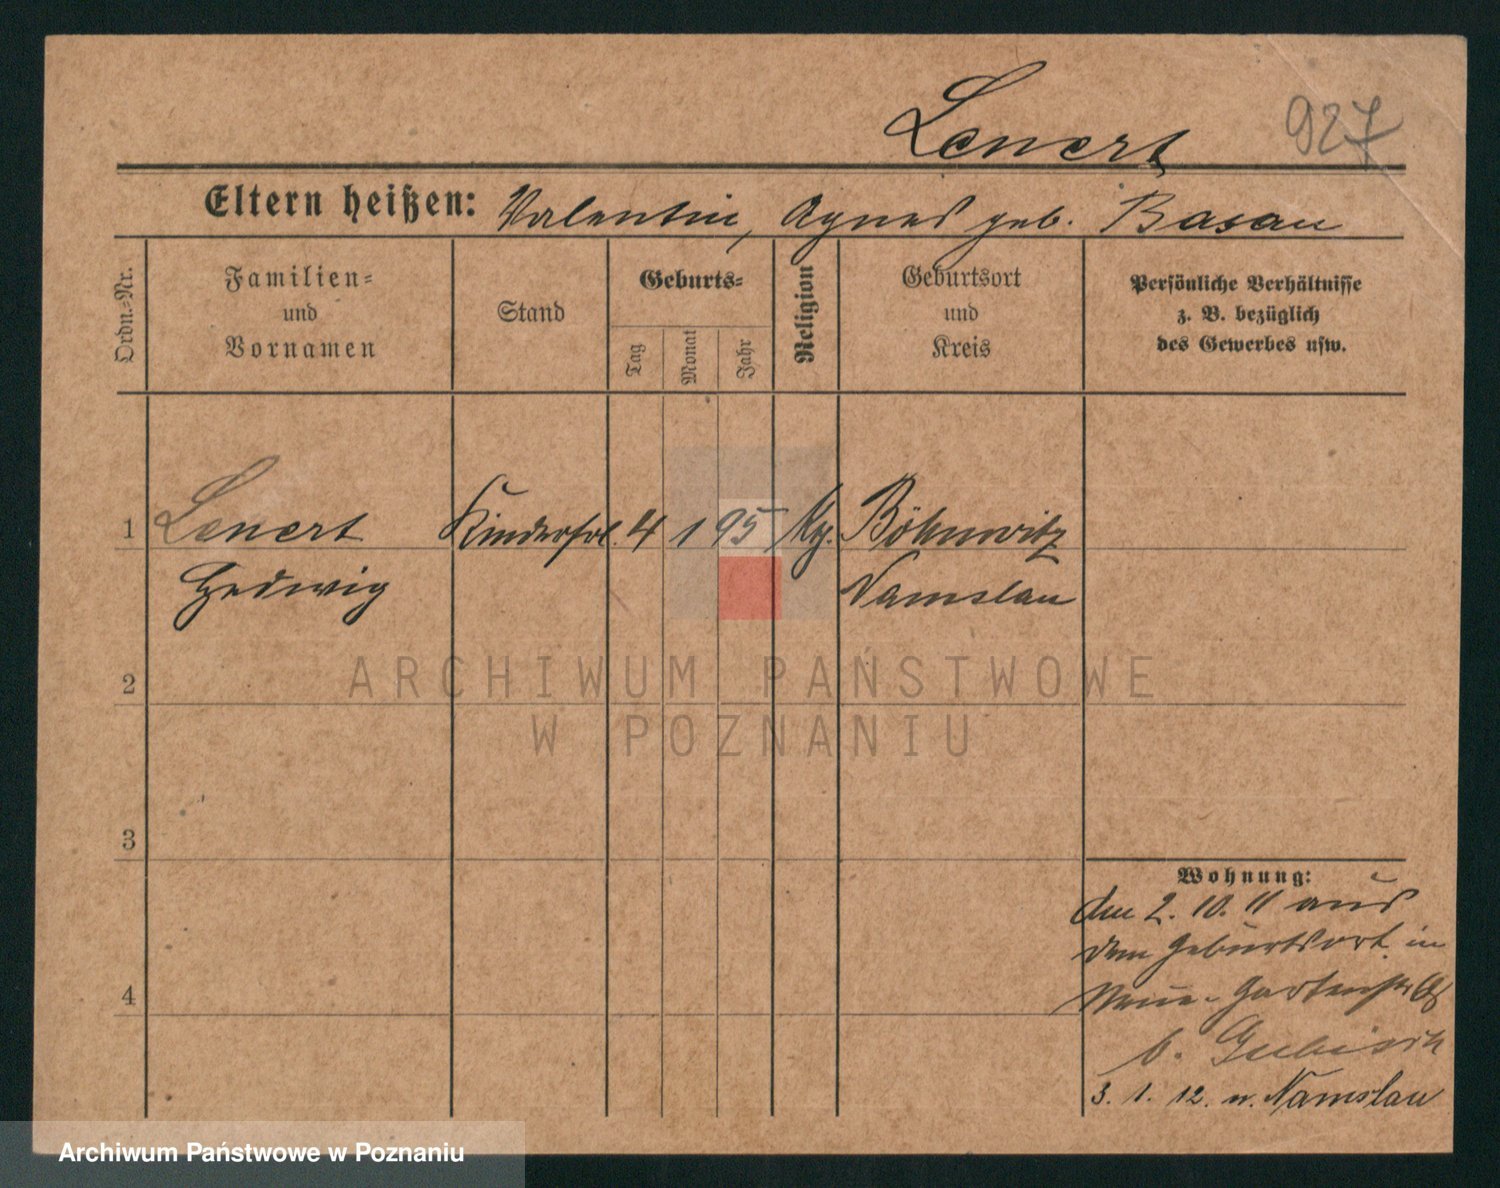 Lenert
927
Eltern heißen: Valentin, Agnes geb. Basan
Ordn.-Nr.
Familien-
und
Vornamen
Stand
Geburts-
Tag
Monat
Jahr
Religion
Geburtsort
und
Kreis
Persönliche Verhältnisse
z. B. bezüglich
des Gewerbes usw.
1 Lenert Kinderfrl. 4 1 95 Böhmwitz
Hedwig Namslau
2
3
4
Wohnung:
den 2. 10. 11 aus
dem Geburtsort in
Neue-Gartenstr
b.
3. 1. 12. n. Namslau
ARCHIWUM PAŃSTWOWE
W POZNANIU
Archiwum Państwowe w Poznaniu